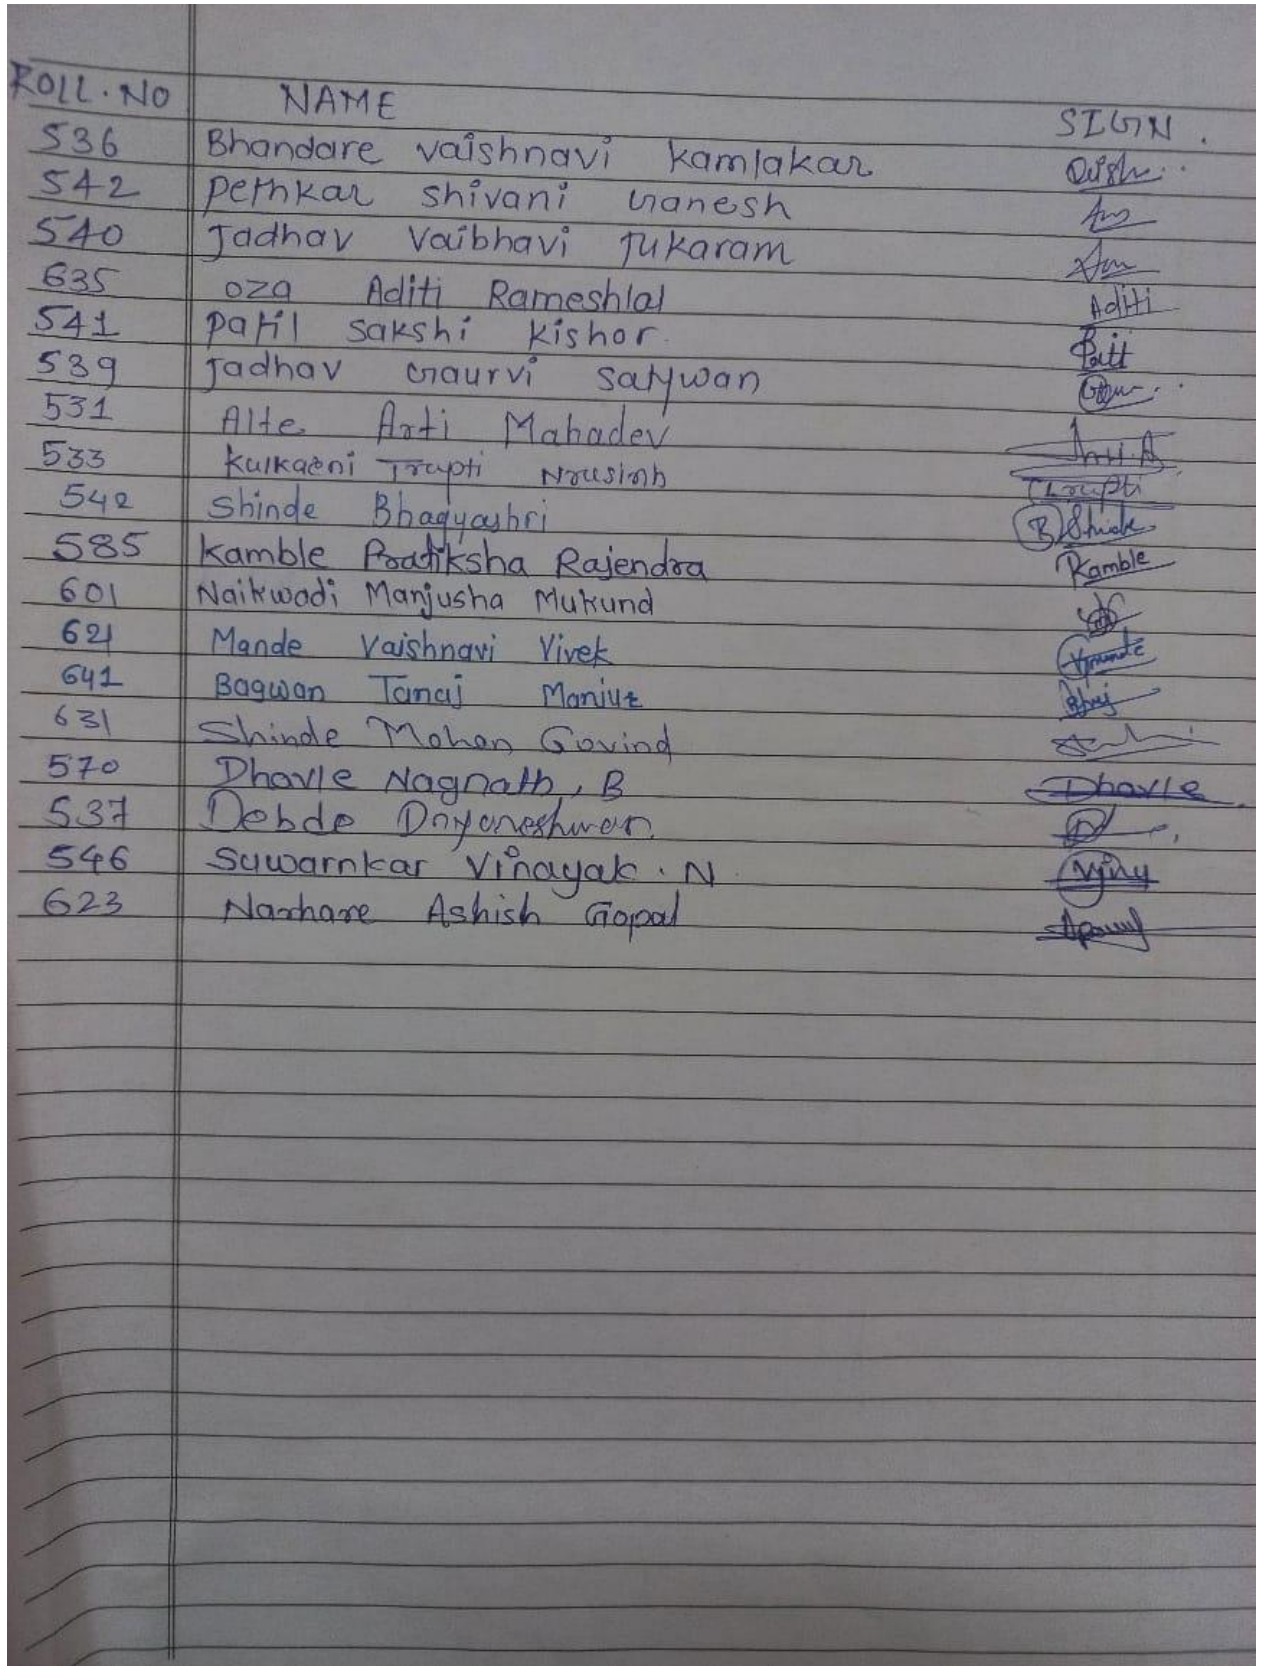 ROLL.NO NAME SIGN.
536 Bhandare vaishnavi kamlakar
542 Pethkar shivani Ganesh
540 Jadhav Vaibhavi Tukaram
635 oza Aditi Rameshlal Aditi
541 patil sakshi kishor. Patil
539 Jadhav Gaurvi Satywan
531 Alte Arti Mahadev Arti.A
533 Kulkarni Trupti Nrusinh Trupti
542 Shinde Bhagyashri B Shinde
585 Kamble Pratiksha Rajendra Kamble
601 Naikwadi Manjusha Mukund
621 Mande Vaishnavi Vivek
641 Bagwan Tanaj
631 Shinde Mohan Govind
570 Dhavle Nagnath, B Dhavle
537 Debde Dnyaneshwar.
546 Suwarnkar Vinayak. N
623 Narhare Ashish Gopal